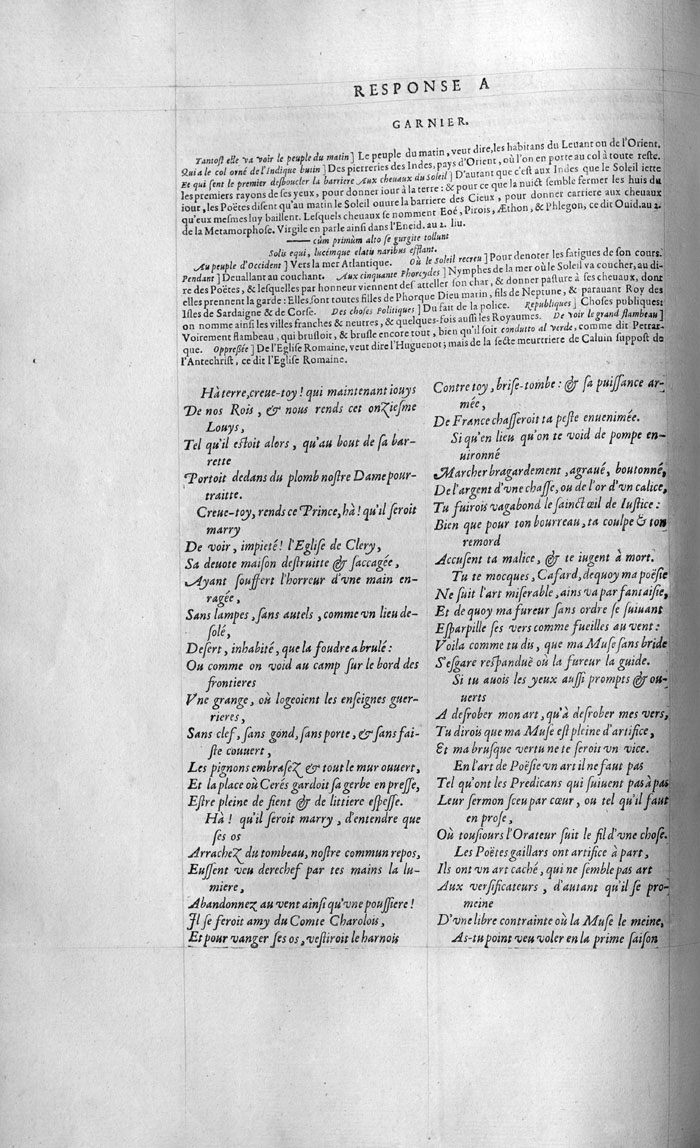 RESPONSE A
GARNIER.
Tantost elle va voir le peuple du matin] Le peuple du matin, veut dire, les habitans du Leuant ou de l'Orient.
Qui a le col orné de l'Indique butin] Des pierreries des Indes, pays d'Orient, où l'on en porte au col à toute reste.
Et qui sent le premier desboucler la barriere Aux cheuaux du soleil] D'autant que c'est aux Indes que le Soleil iette
les premiers rayons de ses yeux, pour donner iour à la terre: & pour ce que la nuict semble fermer les huis du
iour, les Poëtes disent qu'au matin le Soleil ouure la barriere des Cieux, pour donner carriere aux cheuaux
qu'eux mesmes luy baillent. Lesquels cheuaux se nomment Eoé, Pirois, Æthon, & Phlegon, ce dit Ouid. au 2.
de la Metamorphose. Virgile en parle ainsi dans l'Eneid. au 2. liu.
—— cùm primùm alto se gurgite tollunt
Solis equi, lucémque elatis naribus efflant.
Au peuple d'Occident] Vers la mer Atlantique. Où le soleil recreu] Pour denoter les fatigues de son cours.
Pendant] Deuallant au couchant. Aux cinquante Phorcydes] Nymphes de la mer où le Soleil va coucher, au di-
re des Poëtes, & lesquelles par honneur viennent desatteller son char, & donner pasture à ses cheuaux, dont
elles prennent la garde: Elles sont toutes filles de Phorque Dieu marin, fils de Neptune, & parauant Roy des
Isles de Sardaigne & de Corse. Des choses Politiques] Du fait de la police. Republiques] Choses publiques:
on nomme ainsi les villes franches & neutres, & quelques-fois aussi les Royaumes. De voir le grand flambeau]
Voirement flambeau, qui brusloit, & brusle encore tout, bien qu'il soit conduito al verde, comme dit Petrar-
que. Oppressée] De l'Eglise Romaine, veut dire l'Huguenot; mais de la secte meurtriere de Caluin suppost de
l'Antechrist, ce dit l'Eglise Romaine.
Hà terre, creue-toy! qui maintenant iouys
De nos Rois, & nous rends cet onziesme
Louys,
Tel qu'il estoit alors, qu'au bout de sa bar-
rette
Portoit dedans du plomb nostre Dame pour-
traitte.
Creue-toy, rends ce Prince, hà! qu'il seroit
marry
De voir, impieté! l'Eglise de Clery,
Sa deuote maison destruitte & saccagée,
Ayant souffert l'horreur d'vne main en-
ragée,
Sans lampes, sans autels, comme vn lieu de-
solé,
Desert, inhabité, que la foudre a brulé:
Ou comme on void au camp sur le bord des
frontieres
Vne grange, où logeoient les enseignes guer-
rieres,
Sans clef, sans gond, sans porte, & sans fai-
ste couuert,
Les pignons embrasez & tout le mur ouuert,
Et la place où Cerés gardoit sa gerbe en presse,
Estre pleine de fient & de littiere espesse.
Hà! qu'il seroit marry, d'entendre que
ses os
Arrachez du tombeau, nostre commun repos,
Eussent veu derechef par tes mains la lu-
miere,
Abandonnez au vent ainsi qu'vne poussiere!
Il se feroit amy du Comte Charolois,
Et pour vanger ses os, vestiroit le harnois
Contre toy, brise-tombe: & sa puissance ar-
mée,
De France chasseroit ta peste enuenimée.
Si qu'en lieu qu'on te void de pompe en-
uironné
Marcher bragardement, agraué, boutonné,
De l'argent d'vne chasse, ou de l'or d'vn calice,
Tu fuirois vagabond le sainct œil de Iustice:
Bien que pour ton bourreau, ta coulpe & ton
remord
Accusent ta malice, & te iugent à mort.
Tu te mocques, Cafard, dequoy ma poësie
Ne suit l'art miserable, ains va par fantaisie,
Et de quoy ma fureur sans ordre se suiuant
Esparpille ses vers comme fueilles au vent:
Voila comme tu dis, que ma Muse sans bride
S'esgare respanduë où la fureur la guide.
Si tu auois les yeux aussi prompts & ou-
uerts
A desrober mon art, qu'à desrober mes vers,
Tu dirois que ma Muse est pleine d'artifice,
Et ma brusque vertu ne te seroit vn vice.
En l'art de Poësie vn art il ne faut pas
Tel qu'ont les Predicans qui suiuent pas à pas
Leur sermon sceu par cœur, ou tel qu'il faut
en prose,
Où tousiours l'Orateur suit le fil d'vne chose.
Les Poëtes gaillars ont artifice à part,
Ils ont vn art caché, qui ne semble pas art
Aux versificateurs, d'autant qu'il se pro-
meine
D'vne libre contrainte où la Muse le meine,
As-tu point veu voler en la prime saison